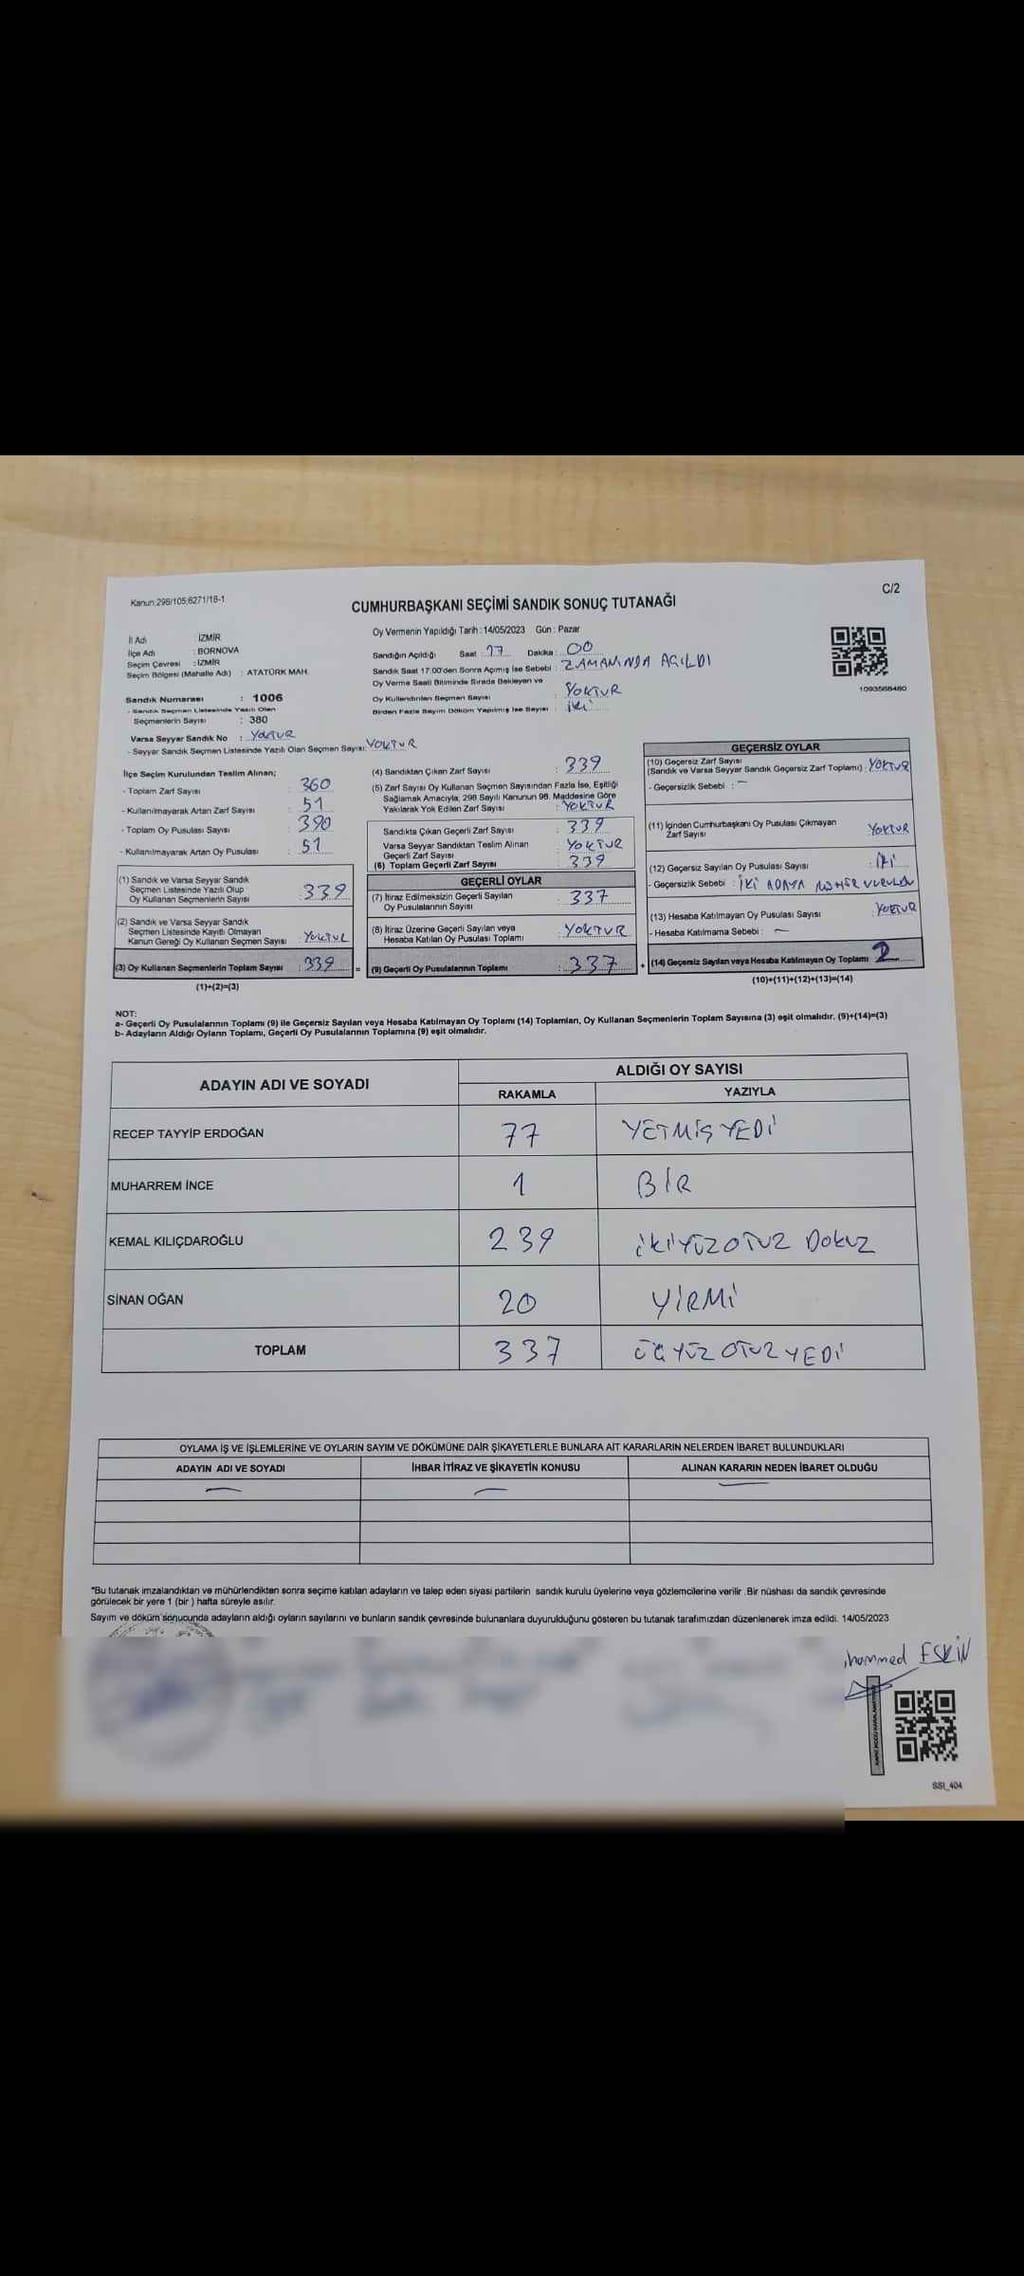 Kanun:298/105;6271/18-1
C/2
CUMHURBAŞKANI SEÇİMİ SANDIK SONUÇ TUTANAĞI
İl Adı İZMİR
İlçe Adı : BORNOVA
Seçim Çevresi : İZMİR
Seçim Bölgesi (Mahalle Adı) : ATATÜRK MAH.
Sandık Numarası : 1006
- Sandık Seçmen Listesinde Yazılı Olan
Seçmenlerin Sayısı : 380
Varsa Seyyar Sandık No : YOKTUR
- Seyyar Sandık Seçmen Listesinde Yazılı Olan Seçmen Sayısı: YOKTUR
Oy Vermenin Yapıldığı Tarih : 14/05/2023 Gün : Pazar
Sandığın Açıldığı Saat : 17 Dakika : 00
Sandık Saat 17:00'den Sonra Açımış İse Sebebi : ZAMANINDA AÇILDI
Oy Verme Saati Bitiminde Sırada Bekleyen ve
Oy Kullandırılan Seçmen Sayısı : YOKTUR
Birden Fazla Sayım Döküm Yapılmış İse Sayısı : İKİ
1093568480
İlçe Seçim Kurulundan Teslim Alınan;
- Toplam Zarf Sayısı : 360
- Kullanılmayarak Artan Zarf Sayısı : 51
- Toplam Oy Pusulası Sayısı : 390
- Kullanılmayarak Artan Oy Pusulası : 51
(1) Sandık ve Varsa Seyyar Sandık
Seçmen Listesinde Yazılı Olup
Oy Kullanan Seçmenlerin Sayısı : 339
(2) Sandık ve Varsa Seyyar Sandık
Seçmen Listesinde Kayıtlı Olmayan
Kanun Gereği Oy Kullanan Seçmen Sayısı : YOKTUR
(3) Oy Kullanan Seçmenlerin Toplam Sayısı : 339
(1)+(2)=(3)
(4) Sandıktan Çıkan Zarf Sayısı : 339
(5) Zarf Sayısı Oy Kullanan Seçmen Sayısından Fazla İse, Eşitliği
Sağlamak Amacıyla; 298 Sayılı Kanunun 98. Maddesine Göre
Yakılarak Yok Edilen Zarf Sayısı : YOKTUR
Sandıkta Çıkan Geçerli Zarf Sayısı : 339
Varsa Seyyar Sandıktan Teslim Alınan
Geçerli Zarf Sayısı : YOKTUR
(6) Toplam Geçerli Zarf Sayısı : 339
GEÇERLİ OYLAR
(7) İtiraz Edilmeksizin Geçerli Sayılan
Oy Pusulalarının Sayısı : 337
(8) İtiraz Üzerine Geçerli Sayılan veya
Hesaba Katılan Oy Pusulası Toplamı : YOKTUR
= (9) Geçerli Oy Pusulalarının Toplamı : 337
GEÇERSİZ OYLAR
(10) Geçersiz Zarf Sayısı
(Sandık ve Varsa Seyyar Sandık Geçersiz Zarf Toplamı) : YOKTUR
- Geçersizlik Sebebi : -
(11) İçinden Cumhurbaşkanı Oy Pusulası Çıkmayan
Zarf Sayısı : YOKTUR
(12) Geçersiz Sayılan Oy Pusulası Sayısı : İKİ
- Geçersizlik Sebebi : İKİ ADAYA MÜHÜR VURULDU
(13) Hesaba Katılmayan Oy Pusulası Sayısı : YOKTUR
- Hesaba Katılmama Sebebi : -
+ (14) Geçersiz Sayılan veya Hesaba Katılmayan Oy Toplamı : 2
(10)+(11)+(12)+(13)=(14)
NOT:
a- Geçerli Oy Pusulalarının Toplamı (9) ile Geçersiz Sayılan veya Hesaba Katılmayan Oy Toplamı (14) Toplamları, Oy Kullanan Seçmenlerin Toplam Sayısına (3) eşit olmalıdır. (9)+(14)=(3)
b- Adayların Aldığı Oyların Toplamı, Geçerli Oy Pusulalarının Toplamına (9) eşit olmalıdır.
ADAYIN ADI VE SOYADI ALDIĞI OY SAYISI
RAKAMLA YAZIYLA
RECEP TAYYİP ERDOĞAN 77 YETMİŞ YEDİ
MUHARREM İNCE 1 BİR
KEMAL KILIÇDAROĞLU 239 İKİYÜZOTUZ DOKUZ
SİNAN OĞAN 20 YİRMİ
TOPLAM 337 ÜÇYÜZ OTUZ YEDİ
OYLAMA İŞ VE İŞLEMLERİNE VE OYLARIN SAYIM VE DÖKÜMÜNE DAİR ŞİKAYETLERLE BUNLARA AİT KARARLARIN NELERDEN İBARET BULUNDUKLARI
ADAYIN ADI VE SOYADI İHBAR İTİRAZ VE ŞİKAYETİN KONUSU ALINAN KARARIN NEDEN İBARET OLDUĞU
- - -
*Bu tutanak imzalandıktan ve mühürlendikten sonra seçime katılan adayların ve talep eden siyasi partilerin sandık kurulu üyelerine veya gözlemcilerine verilir .Bir nüshası da sandık çevresinde
görülecek bir yere 1 (bir ) hafta süreyle asılır.
Sayım ve döküm sonucunda adayların aldığı oyların sayılarını ve bunların sandık çevresinde bulunanlara duyurulduğunu gösteren bu tutanak tarafımızdan düzenlenerek imza edildi. 14/05/2023
hammed ESKİN
SSI_404